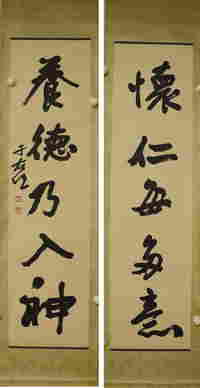 懷仁每多意
養德乃入神
于右任